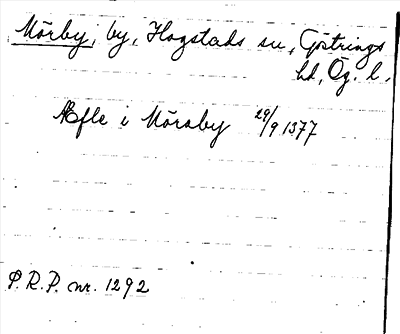 Mörby, by, Hogstads sn, Göstrings
hd, Ög. l.
Æfle i Möraby 29/9 1377
P.R.P. nr. 1292